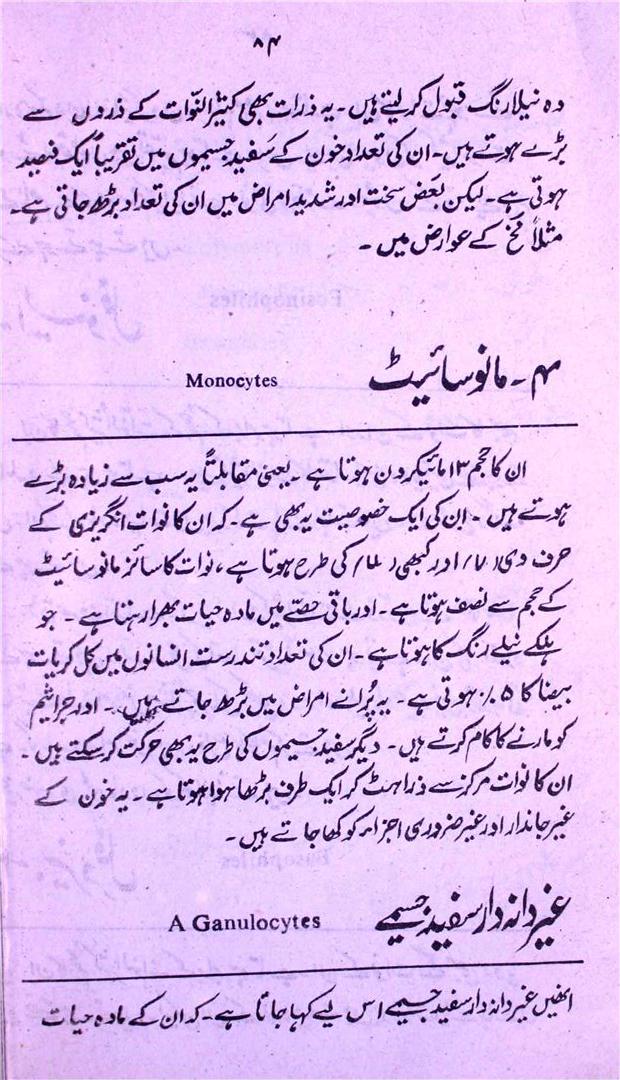 ۸۴
وہ نیلا رنگ قبول کر لیتے ہیں۔ یہ ذرات بھی کثیر النوات کے ذروں سے
بڑے ہوتے ہیں۔ ان کی تعداد خون کے سفید جسیموں میں تقریباً ایک فیصد
ہوتی ہے۔ لیکن بعض سخت اور شدید امراض میں ان کی تعداد بڑھ جاتی ہے۔
مثلاً مخ کے عوارض میں۔
۴۔ مانوسائیٹ Monocytes
ان کا حجم ۱۳ مائیکرون ہوتا ہے۔ یعنی مقابلتاً یہ سب سے زیادہ بڑے
ہوتے ہیں۔ ان کی ایک خصوصیت یہ بھی ہے۔ کہ ان کا نوات انگریزی کے
حرف وی (V) اور کبھی (U) کی طرح ہوتا ہے، نوات کا سائز مانوسائیٹ
کے حجم سے نصف ہوتا ہے۔ اور باقی حصّے میں مادہ حیات بھرا رہتا ہے۔ جو
ہلکے نیلے رنگ کا ہوتا ہے۔ ان کی تعداد تندرست انسانوں میں کل کریات
بیضا کا ۵٪ ہوتی ہے۔ یہ پُرانے امراض میں بڑھ جاتے ہیں۔ اور جراثیم
کو مارنے کا کام کرتے ہیں۔ دیگر سفید جسیموں کی طرح یہ بھی حرکت کر سکتے ہیں۔
ان کا نوات مرکز سے ذرا ہٹ کر ایک طرف بڑھا ہوا ہوتا ہے۔ یہ خون کے
غیر جاندار اور غیر ضروری اجزاء کو کھا جاتے ہیں۔
غیر دانہ دار سفید جسیمے A Ganulocytes
انھیں غیر دانہ دار سفید جسیمے اس لیے کہا جاتا ہے۔ کہ ان کے مادہ حیات